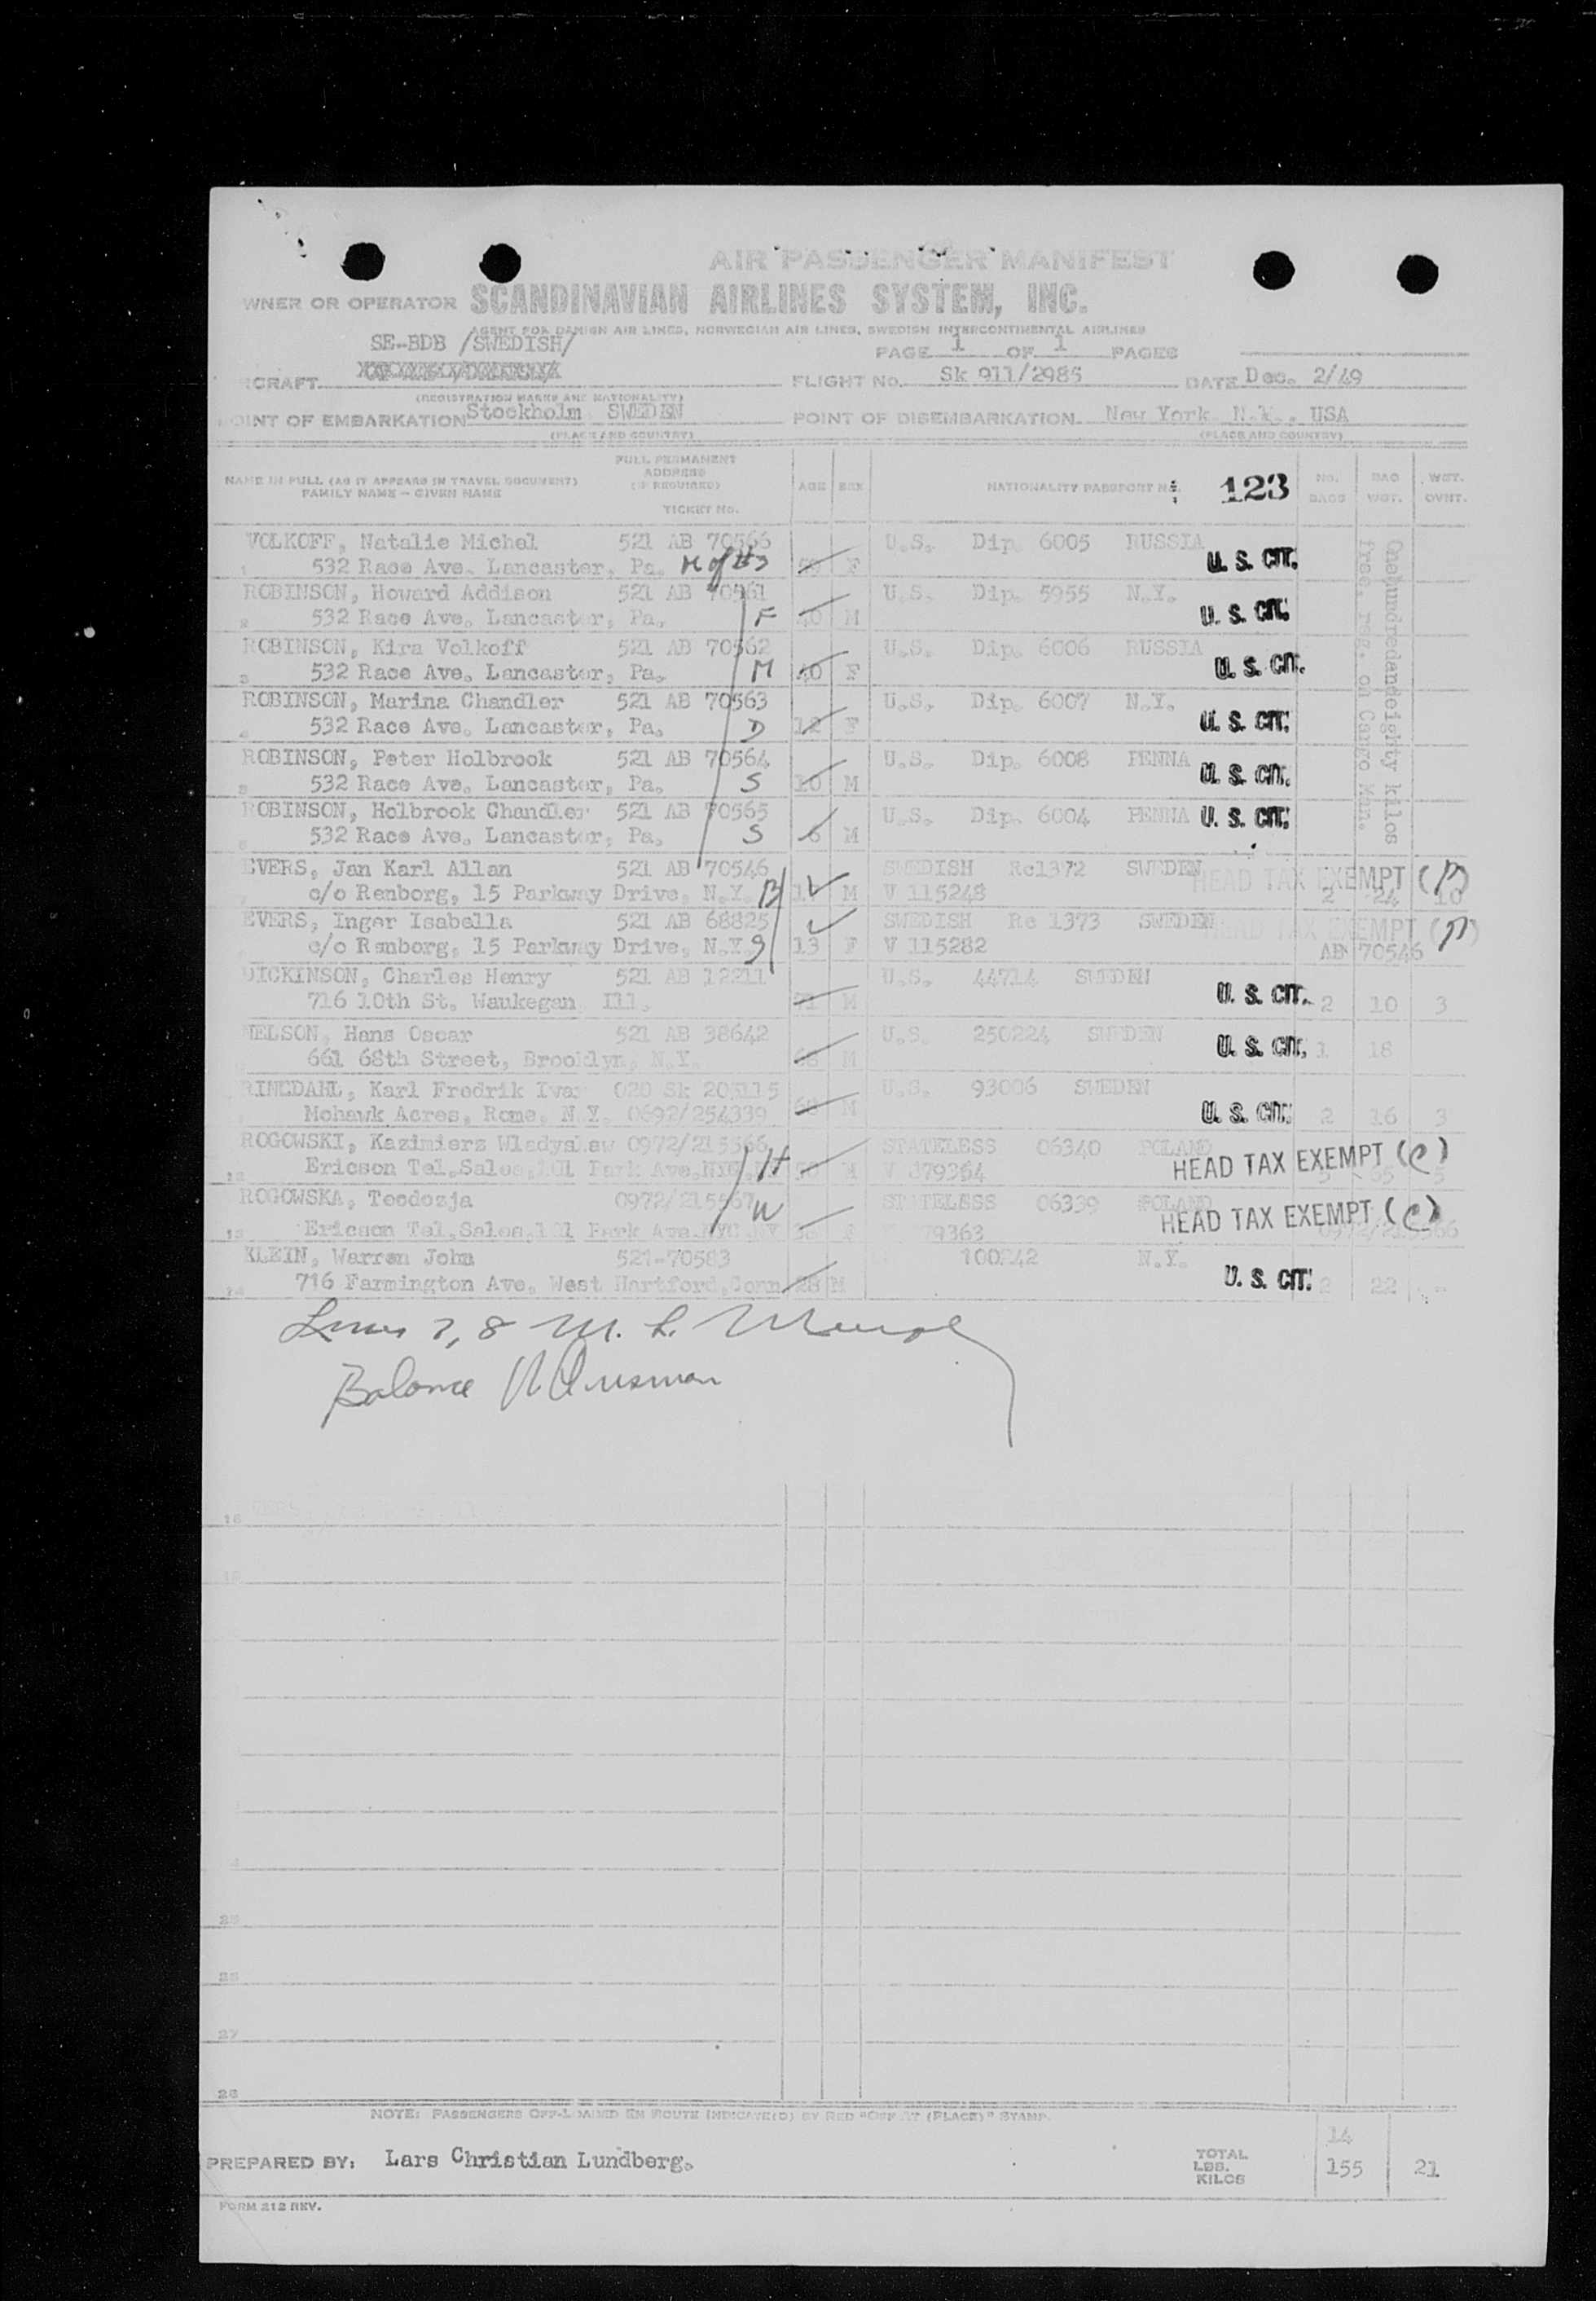 AIR PASSENGER MANIFEST
WNER OR OPERATOR SCANDINAVIAN AIRLINES SYSTEM, INC.
AGENT FOR DANISH AIR LINES, NORWEGIAN AIR LINES, SWEDISH INTERCONTINENTAL AIRLINES
SE-BDB /SWEDISH/ PAGE 1 OF 1 PAGES
CRAFT FLIGHT No. Sk 911/2985 DATE Dec. 2/49
(REGISTRATION MARKS AND NATIONALITY)
OINT OF EMBARKATION Stockholm SWEDEN POINT OF DISEMBARKATION New York N.Y., USA
(PLACE AND COUNTRY) (PLACE AND COUNTRY)
NAME IN FULL (AS IT APPEARS IN TRAVEL DOCUMENT) FAMILY NAME - GIVEN NAME FULL PERMANENT ADDRESS (IF REQUIRED) TICKET No. AGE SEX NATIONALITY PASSPORT No. 123 NO. BAGS BAG WGT. WGT. OVWT.
VOLKOFF, Natalie Michel 521 AB 70566 U.S. Dip. 6005 RUSSIA
1 532 Race Ave. Lancaster, Pa. M of #3 F U. S. CIT.
ROBINSON, Howard Addison 521 AB 70561 U.S. Dip. 5955 N.Y.
2 532 Race Ave. Lancaster, Pa. F 40 M U. S. CIT.
ROBINSON, Kira Volkoff 521 AB 70562 U.S. Dip. 6006 RUSSIA
3 532 Race Ave. Lancaster, Pa. M 40 F U. S. CIT.
ROBINSON, Marina Chandler 521 AB 70563 U.S. Dip. 6007 N.Y.
4 532 Race Ave. Lancaster, Pa. D 12 F U. S. CIT.
ROBINSON, Peter Holbrook 521 AB 70564 U.S. Dip. 6008 PENNA
5 532 Race Ave. Lancaster, Pa. S 10 M U. S. CIT.
ROBINSON, Holbrook Chandler 521 AB 70565 U.S. Dip. 6004 PENNA U. S. CIT.
6 532 Race Ave. Lancaster, Pa. S 6 M
Onehundredandeighty kilos
free. reg. on Cargo Man.
EVERS, Jan Karl Allan 521 AB 70546 SWEDISH Re1372 SWEDEN HEAD TAX EXEMPT
7 c/o Renborg, 15 Parkway Drive, N.Y. B M V 115248 2 24 10
EVERS, Inger Isabella 521 AB 68825 SWEDISH Re 1373 SWEDEN HEAD TAX EXEMPT
c/o Renborg, 15 Parkway Drive, N.Y. S 13 F V 115282 AB 70546
DICKINSON, Charles Henry 521 AB 12211 U.S. 44714 SWEDEN
716 10th St. Waukegan Ill. 71 M U. S. CIT. 2 10 3
NELSON, Hans Oscar 521 AB 38642 U.S. 250224 SWEDEN
661 68th Street, Brooklyn, N.Y. M U. S. CIT. 1 18
RINGDAHL, Karl Fredrik Ivar 020 Sk 203115 U.S. 93006 SWEDEN
Mohawk Acres, Rome, N.Y. 0692/254339 M U. S. CIT. 2 16 3
ROGOWSKI, Kazimierz Wladyslaw 0972/215566 STATELESS 06340 POLAND
12 Ericson Tel.Sales,101 Park Ave.NYC H M V 879364 HEAD TAX EXEMPT (C) 65 5
ROGOWSKA, Teodozja 0972/215567 W STATELESS 06339 POLAND
13 Ericson Tel.Sales,101 Park Ave.NYC F 79363 HEAD TAX EXEMPT (C) 0972/215566
KLEIN, Warren John 521-70583 N.Y.
14 716 Farmington Ave. West Hartford,Conn 28 M U. S. CIT. 2 22 --
Lines 7, 8 M. L.
Balance
NOTE: PASSENGERS OFF-LOADED EN ROUTE INDICATE(D) BY RED "OFF AT (PLACE)" STAMP.
14
PREPARED BY: Lars Christian Lundberg. TOTAL LBS. KILOS 155 21
FORM 212 REV.